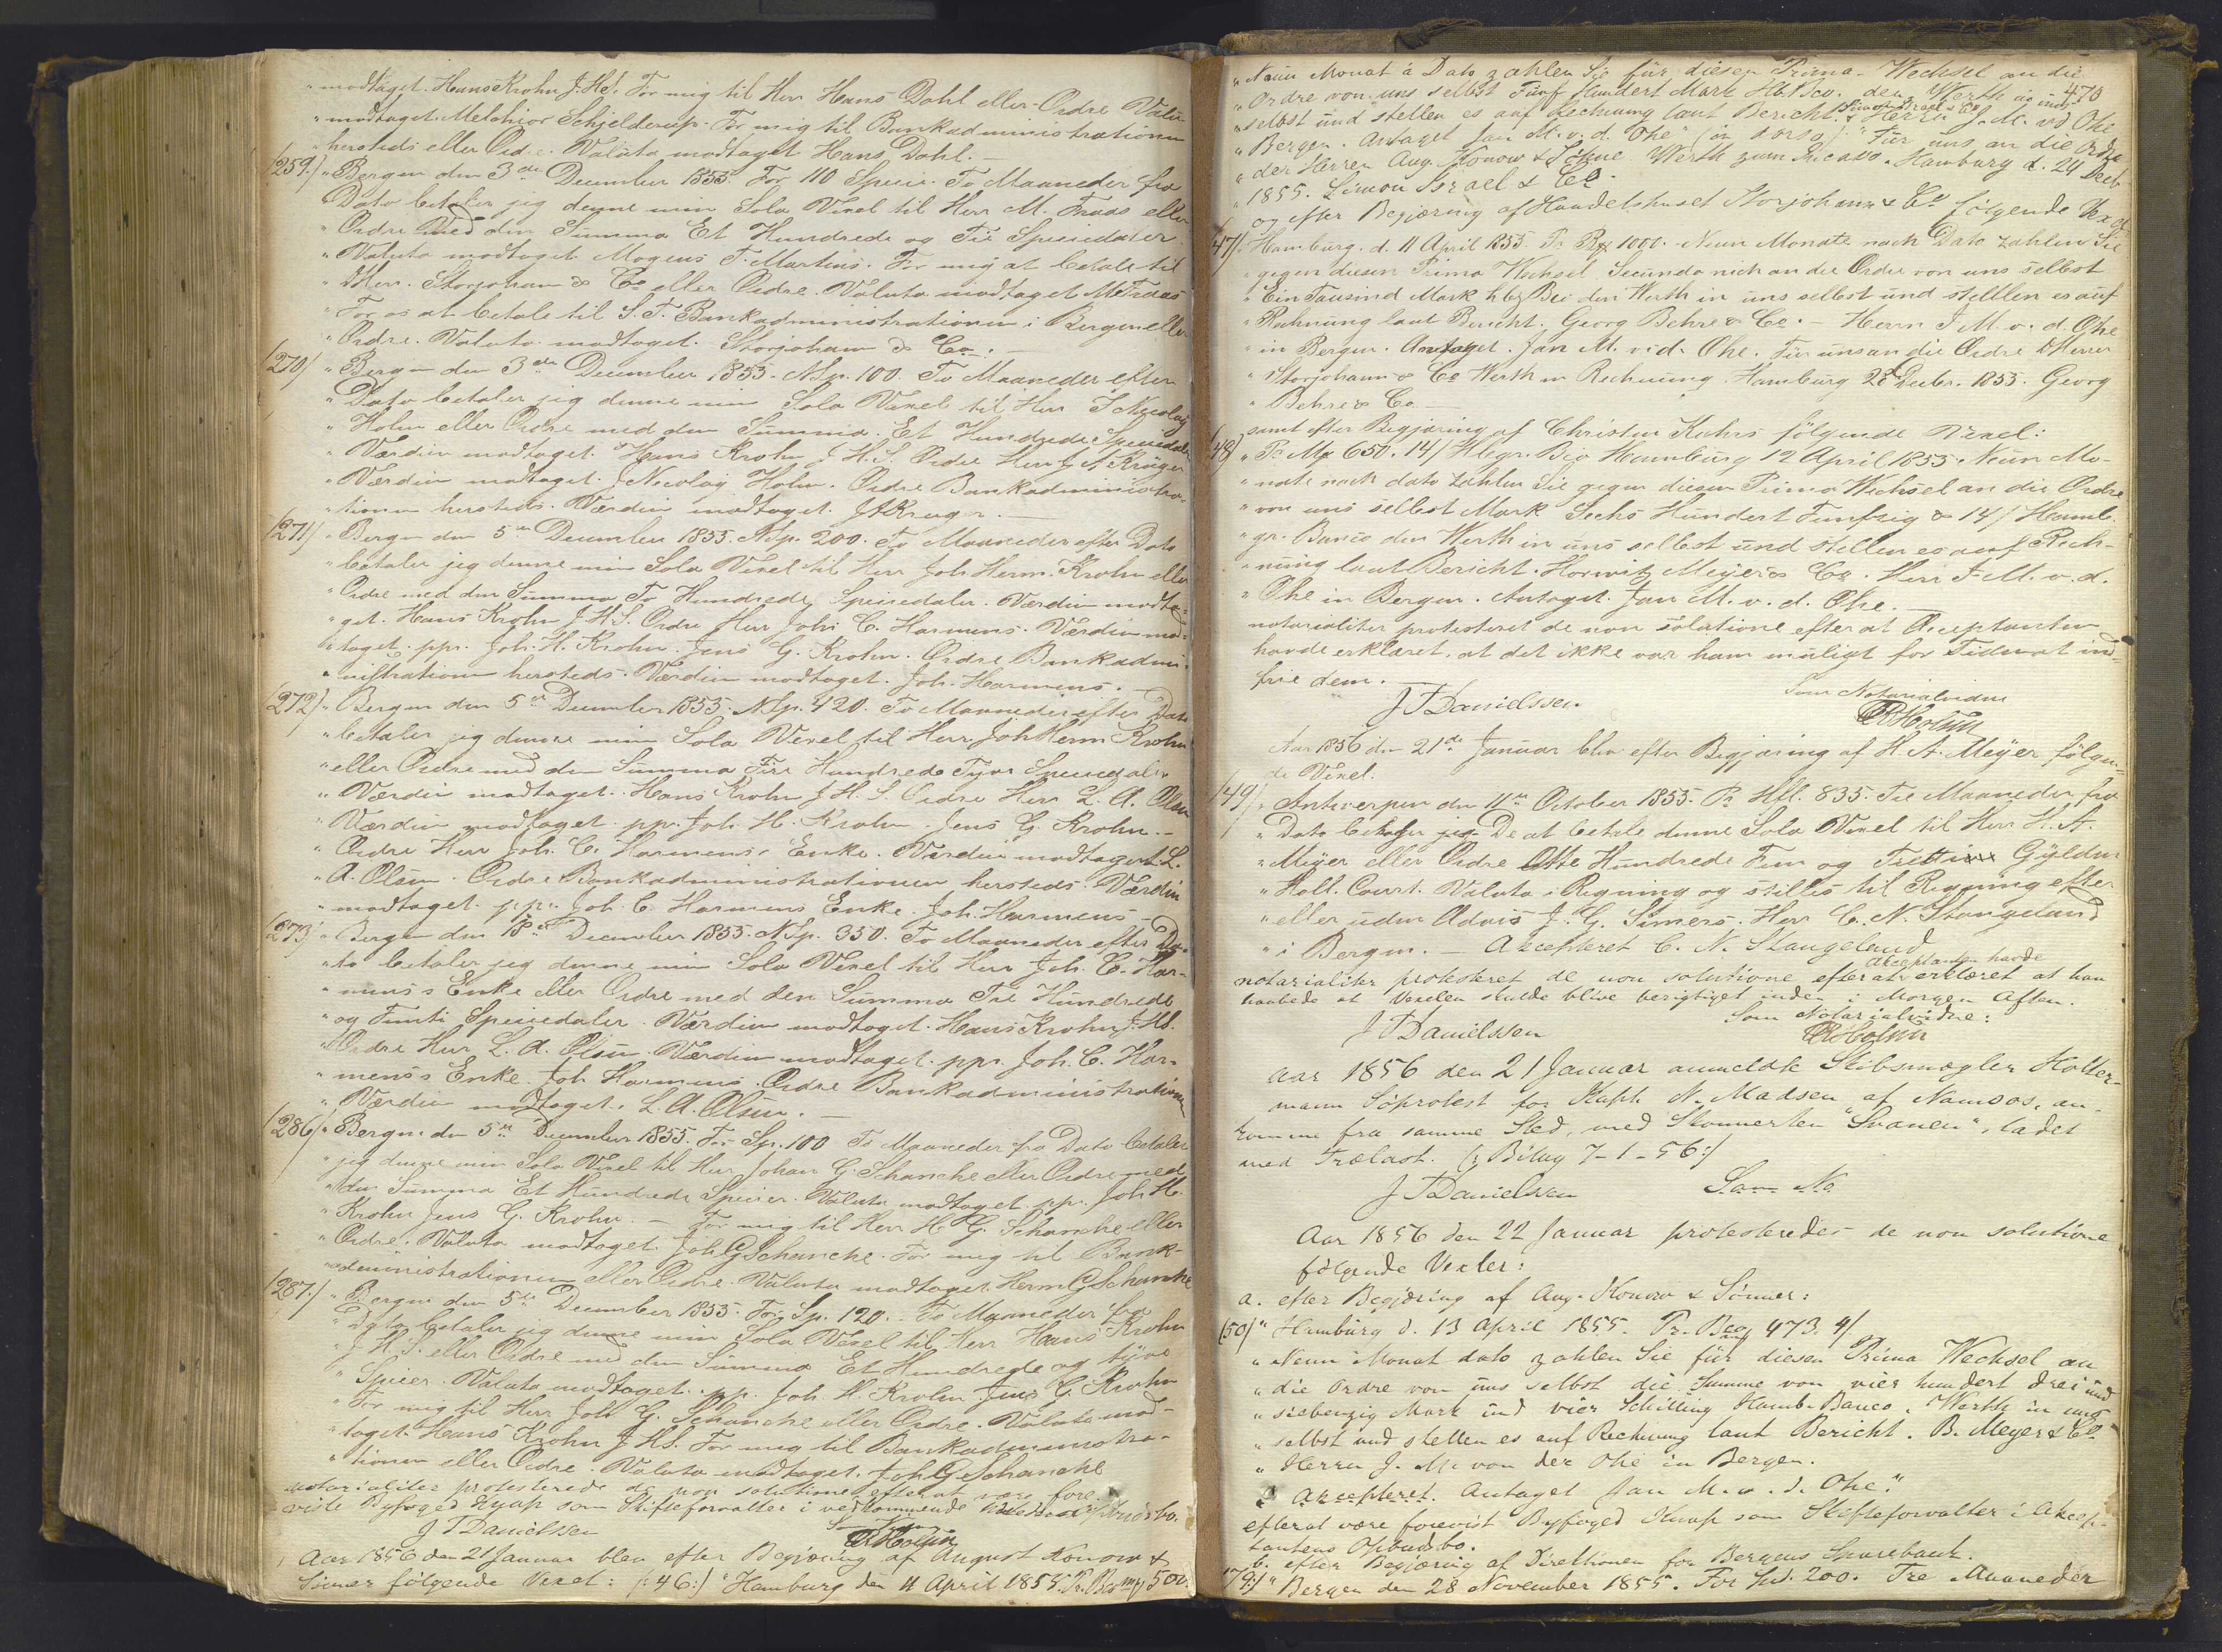 " modtaget. Hans Krohn J. HS. For mig til Herr Hans Dahl eller Ordre Valu-
" modtaget. Melchior Schjelderup. For mig til Bankadministrationen
" hersteds eller Ordre. Valuta modtaget Hans Dahl. —
(259.) " Bergen den 3de December 1855. For 110 Specie. To Maaneder fra
" Dato betaler jeg denne min Sola Vexel til Herr M. Traas eller
" Ordre Med den Summa Et Hundrede og Tie Speciedaler.
" Valuta modtaget Mogens T. Martens. For mig at betale til
" DHerr. Storjohann & Co eller Ordre. Valuta modtaget M Traas
" For os at betale til S. T. Bankadministrationen i Bergen eller
" Ordre. Valuta modtaget. Storjohann & Co. —
(270) " Bergen den 3de December 1855. NSp. 100. To Maaneder efter
" Dato betaler jeg denne min Sola Vexel til Herr J Nicolay
" Holm eller Ordre med den Summa. Et Hundrede Speciedaler
" Værdien modtaget. Hans Krohn J. H. S. Ordre Herr J A Krüger
" Værdien modtaget. J Nicolay Holm. Ordre Bankadministra-
" tionen hersteds. Værdien modtaget. J A Kruger. —
(271) " Bergen den 5te December 1855. NSp. 200. To Maaneder efter Dato
" betaler jeg denne min Sola Vexel til Herr Joh. Herm. Krohn eller
" Ordre med den Summa To Hundrede Speciedaler. Værdien modta-
" get. Hans Krohn J. H. S. Ordre Herr Johs C. Harmens. Værdien mod-
" taget. ppr. Joh. H. Krohn. Jens G. Krohn. Ordre Bankadmi-
" nistrationen hersteds. Værdien modtaget. Joh. Harmens. —
(272) " Bergen den 5te December 1855. NSp. 420. To Maaneder efter Dato
" betaler jeg denne min Sola Vexel til Herr Joh Herm Krohn
" eller Ordre med den Summa Fire Hundrede Tyve Speciedaler
" Værdien modtaget. Hans Krohn J. H. S. Ordre Herr L. A. Olsen
" Værdien modtaget. pp. Joh. H. Krohn. Jens G. Krohn. —
" Ordre Herr Joh. C. Harmens's Enke. Værdien modtaget. L.
" A. Olsen. Ordre Bankadministrationen hersteds. Værdien
" modtaget. pp. Joh. C. Harmens Enke. Joh. Harmens —
(273) " Bergen den 18de December 1855. NSp. 350. To Maaneder efter Da-
" to betaler jeg denne min Sola Vexel til Herr Joh. C. Har-
" mens's Enke eller Ordre med den Summa Tre Hundrede
" og Femti Speciedaler. Værdien modtaget. Hans Krohn J. HS.
" Ordre Herr L. A. Olsen. Værdien modtaget. ppr. Joh. C. Har-
" mens's Enke. Joh Harmens. Ordre Bankadministrationen
" Værdien modtaget. L. A. Olsen. —
(286) " Bergen den 5te December 1855. For Sp. 100 To Maaneder fra Dato betaler
" jeg denne min Sola Vexel til Herr Johan G. Schancke eller Ordre med
" den Summa Et Hundrede Specier. Valuta modtaget pp. Joh H.
" Krohn Jens G. Krohn. — For mig til Herr H G. Schancke eller
" Ordre. Valuta modtaget. Joh. G Schancke. For mig til Bank-
" administrationen eller Ordre. Valuta modtaget. Herm G Schancke
(287.) " Bergen den 5te December 1855. For Sp. 120. To Maaneder fra
" Dato betaler jeg denne min Sola Vexel til Herr Hans Krohn
" J. H. S. eller Ordre med den Summa Et Hundrede og tyve
" Specier. Valuta modtaget. pp. Joh. H. Krohn Jens G. Krohn
" For mig til Herr Joh G. Schancke eller Ordre. Valuta mod-
" taget. Hans Krohn J. HS. For mig til Bankadministra-
" tionen eller Ordre. Valuta modtaget. Joh G Schancke
notarialiter protesterede de non solutione efterat være fore-
viste Byfoged Knap som Skifteforvalter i vedkommende
J T Danielssen
R Holm
Aar 1856 den 21 Januar blev efter Begjæring af August Konow &
Sönner følgende Vexel: (46:) "Hamburg den 11 April 1855. Pr. Bco mp 500.
470
" Neun Monat à Dato zahlen Sie für diesen Prima-Wechsel an die
" Ordre von uns selbst Fünf Hundert Mark Hb. Bco. den Werth in uns
" selbst und stellen es auf Rechnung laut Bericht. Simon Israel & Co Herrn J. M. vd Ohe
" Bergen. Antaget Jan M. v. d. Ohe" (in dorso): "Für uns an die Ordre
" der Herren Aug. Konow & Söhne Werth zum Incasso. Hamburg d. 24 Decb
" 1855. Simon Israel & Co.
og efter Begjæring af Handelshuset Storjohann & Co følgende Vexel
(47) " Hamburg. d. 11 April 1855. Pr 1000. Neun Monate nach Dato zahlen Sie
" gegen diesen Prima Wechsel, Secunda nich an die Ordre von uns selbst
" Ein Tausind Mark hbg Bco den Werth in uns selbst und stelllen es auf
" Rechnung laut Bericht. Georg Behre & Co. — Herrn J M. v. d. Ohe
" in Bergen. Antaget. Jan M. v. d. Ohe. Für uns an die Ordre DHerrer
" Storjohann & Co Werth in Rechnung. Hamburg 28 Decbr. 1855. Georg
" Behre & Co —
samt efter Begjæring af Christen Kahrs følgende Vexel:
(48) " Pr Mp 650. 14/ Hbgr. Bco Hamburg 12 April 1855. Neun Mo-
" nate nach dato zahlen Sie gegen diesen Prima Wechsel an die Ordre
" von uns selbst Mark Sechs Hundert Funfzig & 14/ Hamb.
" gr. Banco den Werth in uns selbst und stellen es auf Rech-
" nung laut Bericht. Horwitz Meyer & Co. Herr J. M. v. d.
" Ohe in Bergen. Antaget. Jan M. v. d. Ohe. —
notarialiter protesteret de non solutione efterat Acceptanten
havde erklæret, at det ikke var ham muligt for Tiden at ind-
frie dem. —
J T Danielssen
Som Notarialvidne
R Holm
Aar 1856 den 21de Januar blev efter Begjæring af H. A. Meyer følgen-
de Vexel.
(49) " Antwerpen den 11te October 1855. Pr Hfl. 835. Tre Maaneder fra
" Dato behager De at betale denne Sola Vexel til Herr H. A.
" Meyer eller Ordre Otte Hundrede Fem og Tretti Gylden
" Holl. Court. Valuta i Regning og stilles til Regning efter
" eller uden Advis J. G. Simers. Herr C. N. Stangeland
" i Bergen. — Accepteret C. N. Stangeland
notarialiter protesteret de non solutione efterat Acceptanten havde erklæret at han
haabede at Vexelen skulde blive berigtiget inden i Morgen Aften.
J T Danielssen
Som Notarialvidne:
R Holm
Aar 1856 den 21 Januar anmeldte Skibsmægler Holter-
mann Söprotest for Kapt N. Madsen af Namsos, an-
komme fra samme Sted, med Skonnerten "Svanen", ladet
med Trælast. (: Bilag 7-1-56:)
J T Danielssen
Som No
Aar 1856 den 22 Januar protesteredes de non solutione
følgende Vexler:
a. efter Begjæring af Aug. Konow & Sönner:
(50) " Hamburg d. 13 April 1855. Pr. Bco 473. 4/
" Neun Monat dato zahlen Sie für diesen Prima Wechsel an
" die Ordre von uns selbst die Summe von vier hundert drei und
" siebenzig Mark und vier Schilling Hamb. Banco. Werth in uns
" selbst und stellen es auf Rechnung laut Bericht. B. Meyer & Co.
" Herrn J. M. von der Ohe in Bergen.
" Accepteret. Antaget Jan M. v. d. Ohe."
efterat være forevist Byfoged Knap som Skifteforvalter i Akcep-
tantens Opbudsbo.
b. efter Begjæring af Direktionen for Bergens Sparebank.
" Bergen den 28 November 1855. For Spd. 200. Tre Maaneder